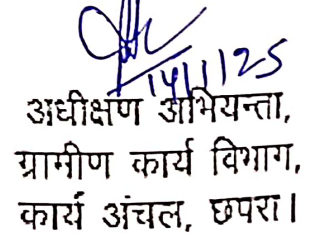 14/1/25
अधीक्षण अभियन्ता,
ग्रामीण कार्य विभाग,
कार्य अंचल, छपरा।